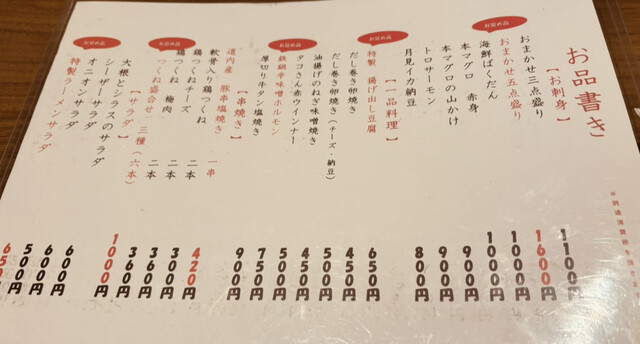 お品書き
【お刺身】
おまかせ三点盛り 1100円
おまかせ五点盛り 1600円
海鮮ばくだん 1100円
本マグロ 赤身 1000円
本マグロの山かけ 900円
トロサーモン 900円
月見イカ納豆 800円
お奨め品
【一品料理】
特製 揚げ出し豆腐 650円
だし巻き卵焼き 450円
だし巻き卵焼き(チーズ・納豆) 500円
油揚げのねぎ味噌焼き 450円
タコさん赤ウインナー 500円
鉄鍋辛味噌ホルモン 750円
厚切り牛タン塩焼き 900円
お奨め品
お奨め品
【串焼き】
道内産 豚串塩焼き 一串 420円
軟骨入り鶏つくね 二本 300円
鶏つくねチーズ 二本 360円
鶏つくね 梅肉 二本 360円
つくね盛合せ 三種(六本) 1000円
お奨め品
【サラダ】
大根とシラスのサラダ 600円
シーザーサラダ 600円
オニオンサラダ 500円
特製ラーメンサラダ 650円
お奨め品